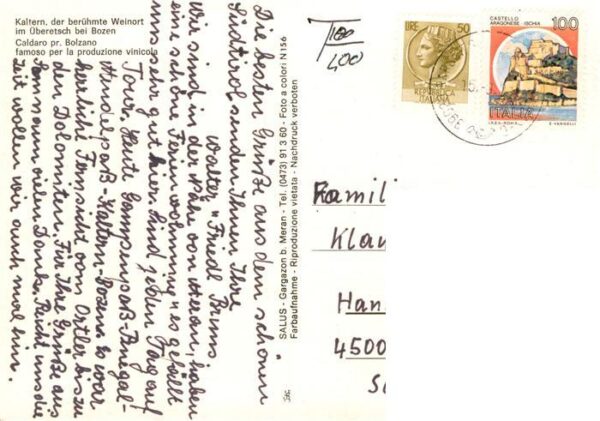 Kaltern, der berühmte Weinort
im Überetsch bei Bozen
Caldaro pr. Bolzano
famoso per la produzione vinicola
Die besten Grüße aus dem schönen
Südtirol senden Ihnen Ihre
Walter u. Friedl Bruns
Wir sind in der Nähe von Meran, haben
eine schöne Ferienwohnung, es gefällt
uns sehr gut hier. Sind jeden Tag auf
Tour. Heute Gampenpaß-Penegal-
Mendelpaß-Kaltern-Bozen. Es war
herrliche Fernsicht vom Ortler bis zu
den Dolomiten. Für Ihre Grüße aus
vielen Dank. Reicht uns die
Zeit wollen wir auch mal hin.
SALUS - Gargazon b. Meran - Tel. (0473) 91 3 60 - Foto a colori N 156
Farbaufnahme - Riproduzione vietata - Nachdruck verboten
T 100
400
LIRE 50
REPUBBLICA
ITALIANA
CASTELLO
ARAGONESE - ISCHIA
100
ITALIA
I.P.Z.S. - ROMA
E. VANGELLI
Famili
Klau
Han
4500